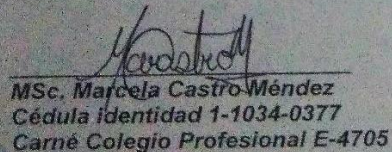 MSc. Marcela Castro Méndez
Cédula identidad 1-1034-0377
Carné Colegio Profesional E-4705